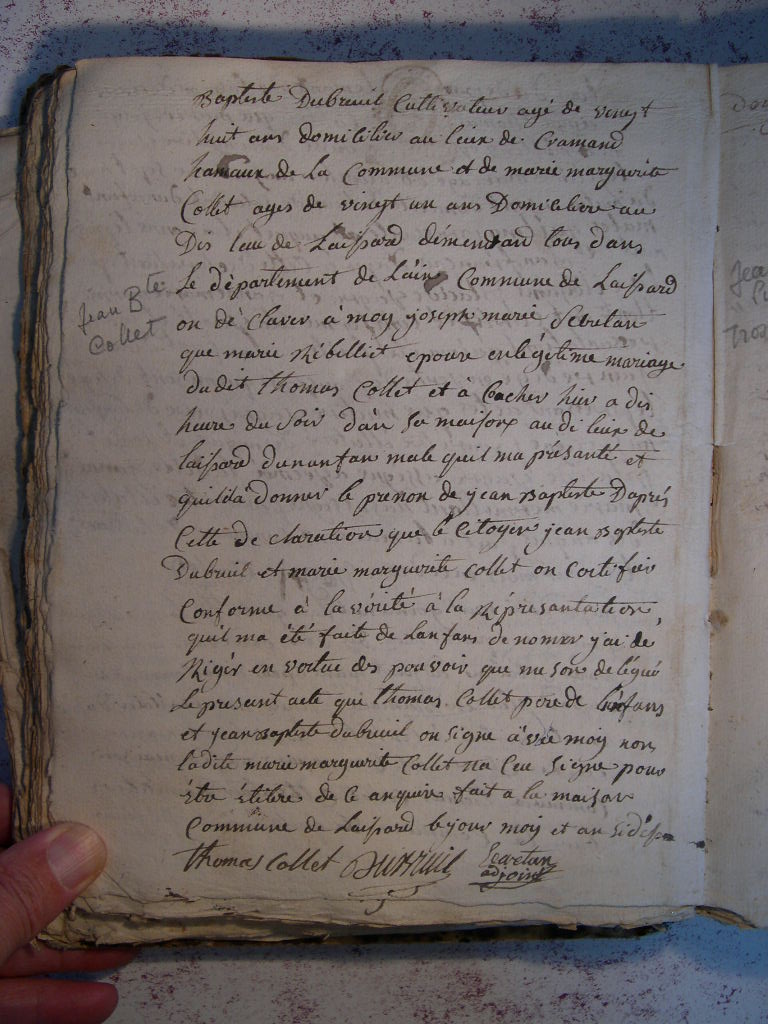 Baptiste Dubreuil Cultivateur agé de vingt
huit ans domicilier au lieux de Cramand
hamaux de La Commune et de marie marguerite
Collet ages de vingt un ans Domiciliere au
Dis lieu de Laissard démeurand tous dans
Le département de Lain Commune de Laissard
on dé Clarer à moy joseph marie Secretan
que marie Ribelliet epouse en légétime mariage
dudit Thomas Collet et à Coucher hier a dis
heure du Soir dan Sa maison audi lieux de
laissard dunanfan male quil ma présanté et
quil a donner le prenon de jean Baptiste Daprés
Cette dé claration que le Citoyen jean Baptiste
Dubreuil et marie marguerite Collet on Certifier
Conforme à la vérité à la Réprésantation
quil ma été faite de Lanfans dénomer jai dé
Rigér en vertue des pouvoir que me son délégué
Le present acte que Thomas Collet pere de lenfans
et jean Baptiste dubreuil on Signe avec moy non
ladite marie marguerite Collet na Ceu Signe pour
étre de Ce anquire fait a la maison
Commune de Laissard le jour moy et an
Thomas Collet Dubreuil Secretan
adjoint
Jean Bte
Collet